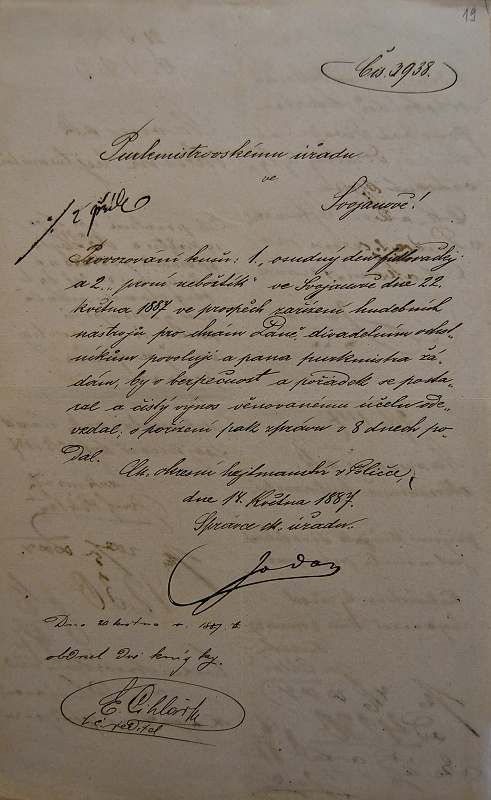 19
Čís. 3938.
Purkmistrovskému úřadu
ve
Svojanově!
./. 2 příl.
Provozování kusů: 1., osudný den
a 2. „první nebožtík“ ve Svojanově dne 22.
května 1887 ve prospěch zařízení hudebních
nástrojů pro chrám Páně, divadelním ochot-
níkům povoluji a pana purkmistra žá-
dám, by o bezpečnost a pořádek se posta-
ral a čistý výnos věnovanému účelu ode-
vzdal, o pořízení pak zprávu v 8 dnech po-
dal.
Ck. okresní hejtmanství v Poličce,
dne 14. května 1887.
Správce ck. úřadu.
Dne 20 května r. 1887
obdržel dvě knížky.
E. Cihlářský